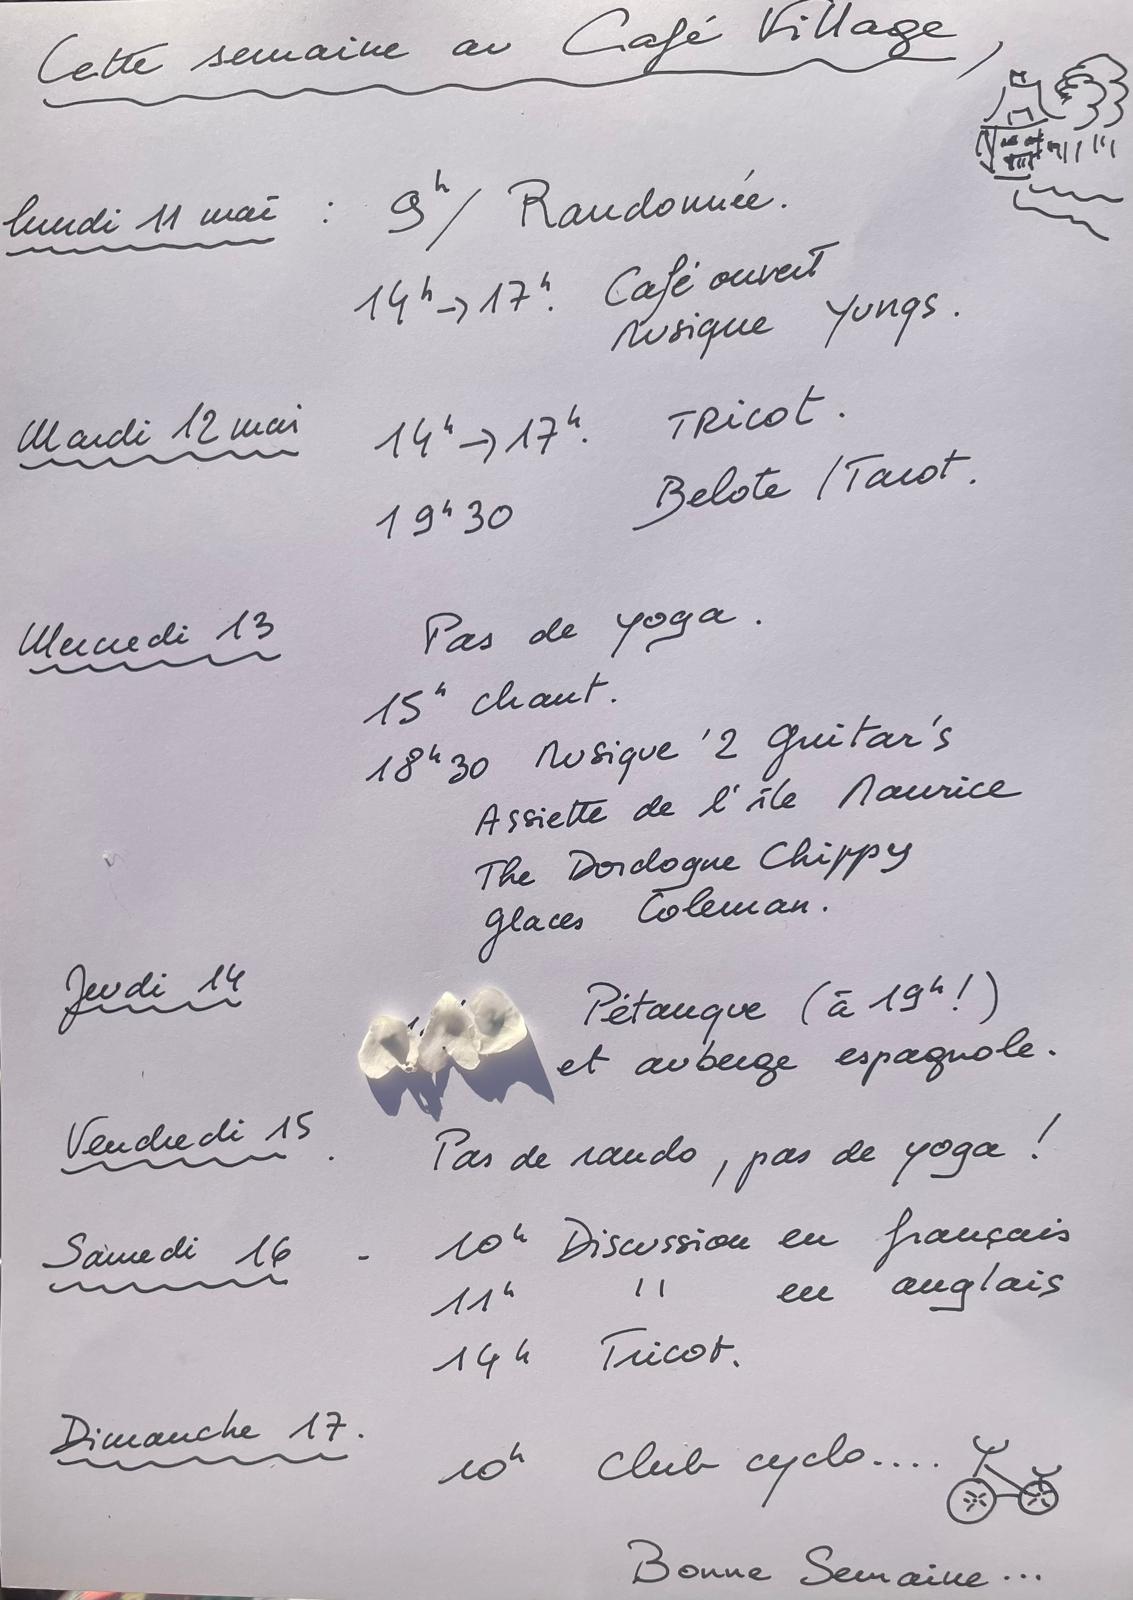 Cette semaine au Café Village,
lundi 11 mai : 9h / Randonnée.
14h → 17h. Café ouvert
Musique Yungs.
Mardi 12 mai 14h → 17h. TRicot.
19h30 Belote / Tarot.
Mercredi 13 Pas de yoga.
15h chant.
18h30 Musique '2 Guitar's
Assiette de l'île Maurice
The Dordogne Chippy
glaces Coleman.
Jeudi 14 Pétanque (à 19h!)
et auberge espagnole.
Vendredi 15. Pas de rando, pas de yoga !
Samedi 16 - 10h Discussion en français
11h " en anglais
14h Tricot.
Dimanche 17. 10h Club cyclo....
Bonne Semaine...